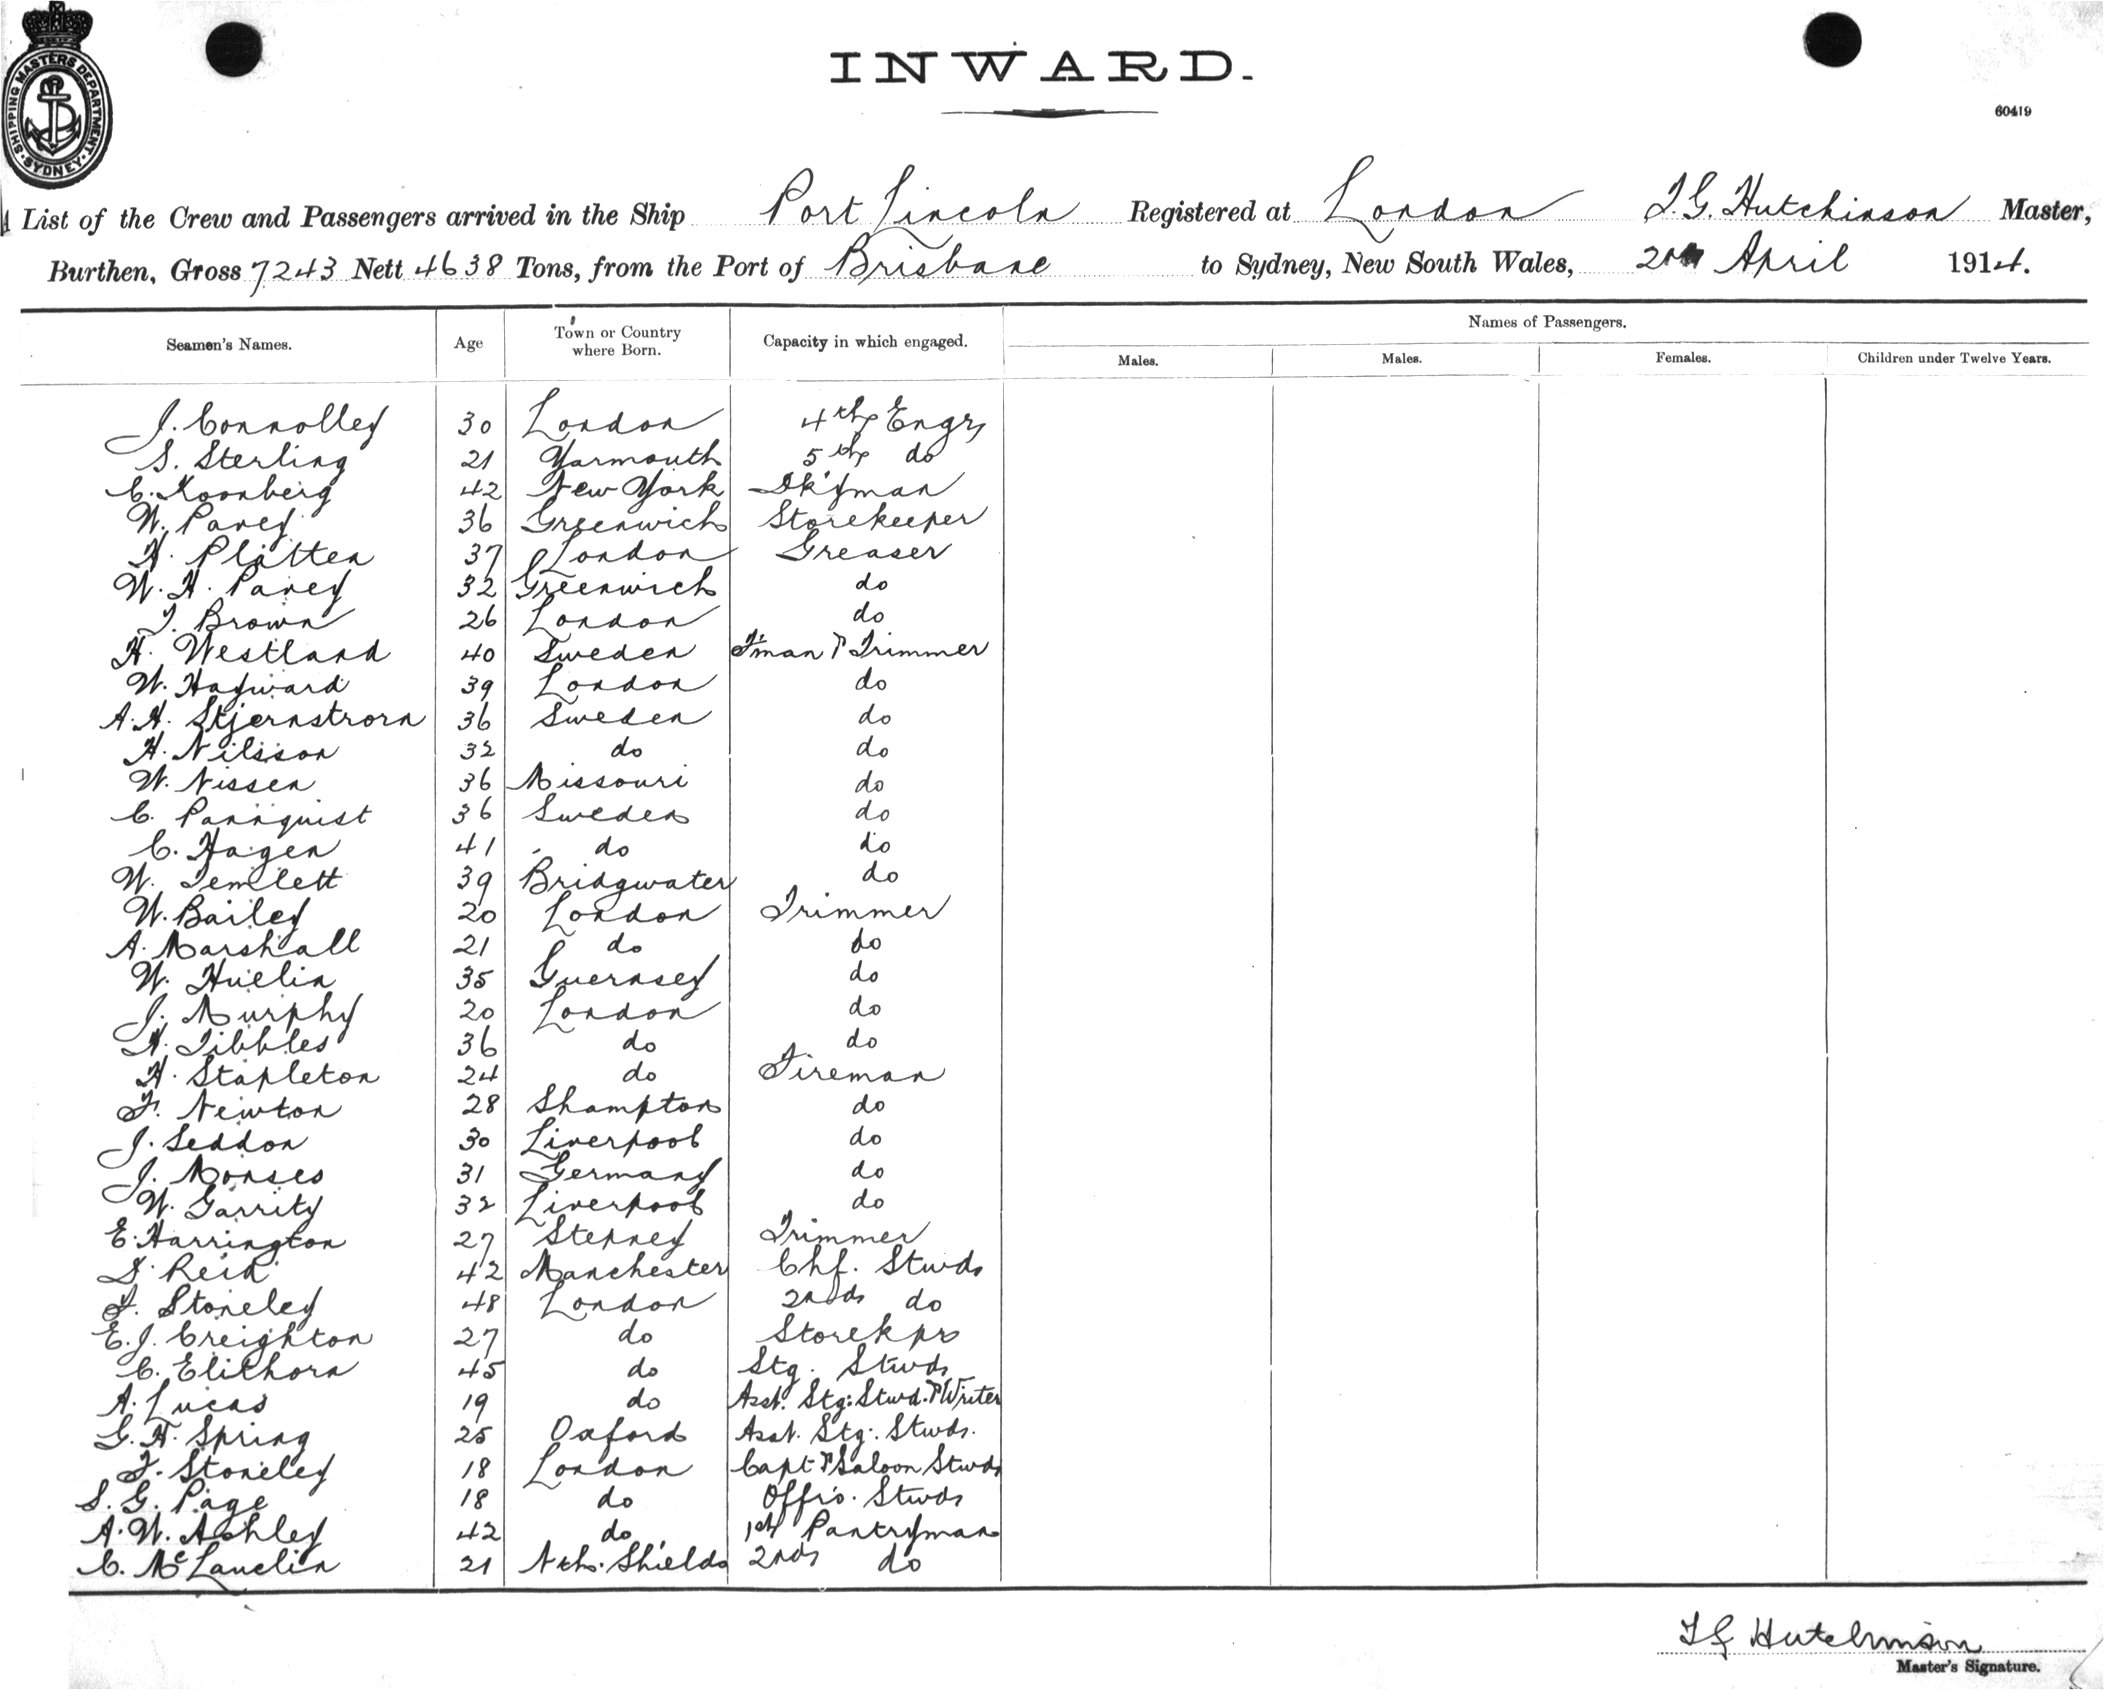 SHIPPING MASTERS DEPARTMENT SYDNEY
INWARD.
60419
List of the Crew and Passengers arrived in the Ship Port Lincoln Registered at London T. G. Hutchinson Master,
Burthen, Gross 7243 Nett 4638 Tons, from the Port of Brisbane to Sydney, New South Wales, April 1914.
Seamen's Names. Age Town or Country where Born. Capacity in which engaged. Names of Passengers.
Males. Males. Females. Children under Twelve Years.
J. Connolley 30 London 4th Engr
S. Sterling 21 Yarmouth 5th do
C. Koonberg 42 New York Dk'yman
W. Pavey 36 Greenwich Storekeeper
H. Platten 37 London Greaser
W. H. Pavey 32 Greenwich do
T. Brown 26 London do
H. Westland 40 Sweden F'man & Trimmer
W. Hayward 39 London do
A. H. Stjernstrom 36 Sweden do
H. Nilsson 32 do do
W. Nissen 36 Missouri do
C. Pannquist 36 Sweden do
C. Hagen 41 do do
W. Temlett 39 Bridgwater do
W. Bailey 20 London Trimmer
A. Marshall 21 do do
W. Huelin 35 Guernsey do
J. Murphy 20 London do
H. Tibbles 36 do do
H. Stapleton 24 do Fireman
F. Newton 28 Shampton do
J. Seddon 30 Liverpool do
J. Monses 31 Germany do
W. Garrity 32 Liverpool do
E. Harrington 27 Stepney Trimmer
Reid 42 Manchester Chf. Stwd
F. Stoneley 48 London 2nd do
E. J. Creighton 27 do Storekpr
C. Elithorn 45 do Stg. Stwd
A. Lucas 19 do Asst. Stg: Stwd. & Writer
G. H. Spring 25 Oxford Asst. Stg: Stwd.
F. Stoneley 18 London Capt & Saloon Stwd
S. G. Page 18 do Offrs. Stwd
A. W. Ashley 42 do 1st Pantryman
C. McLauclin 21 Nth. Shields 2nd do
T G Hutchinson
Master's Signature.